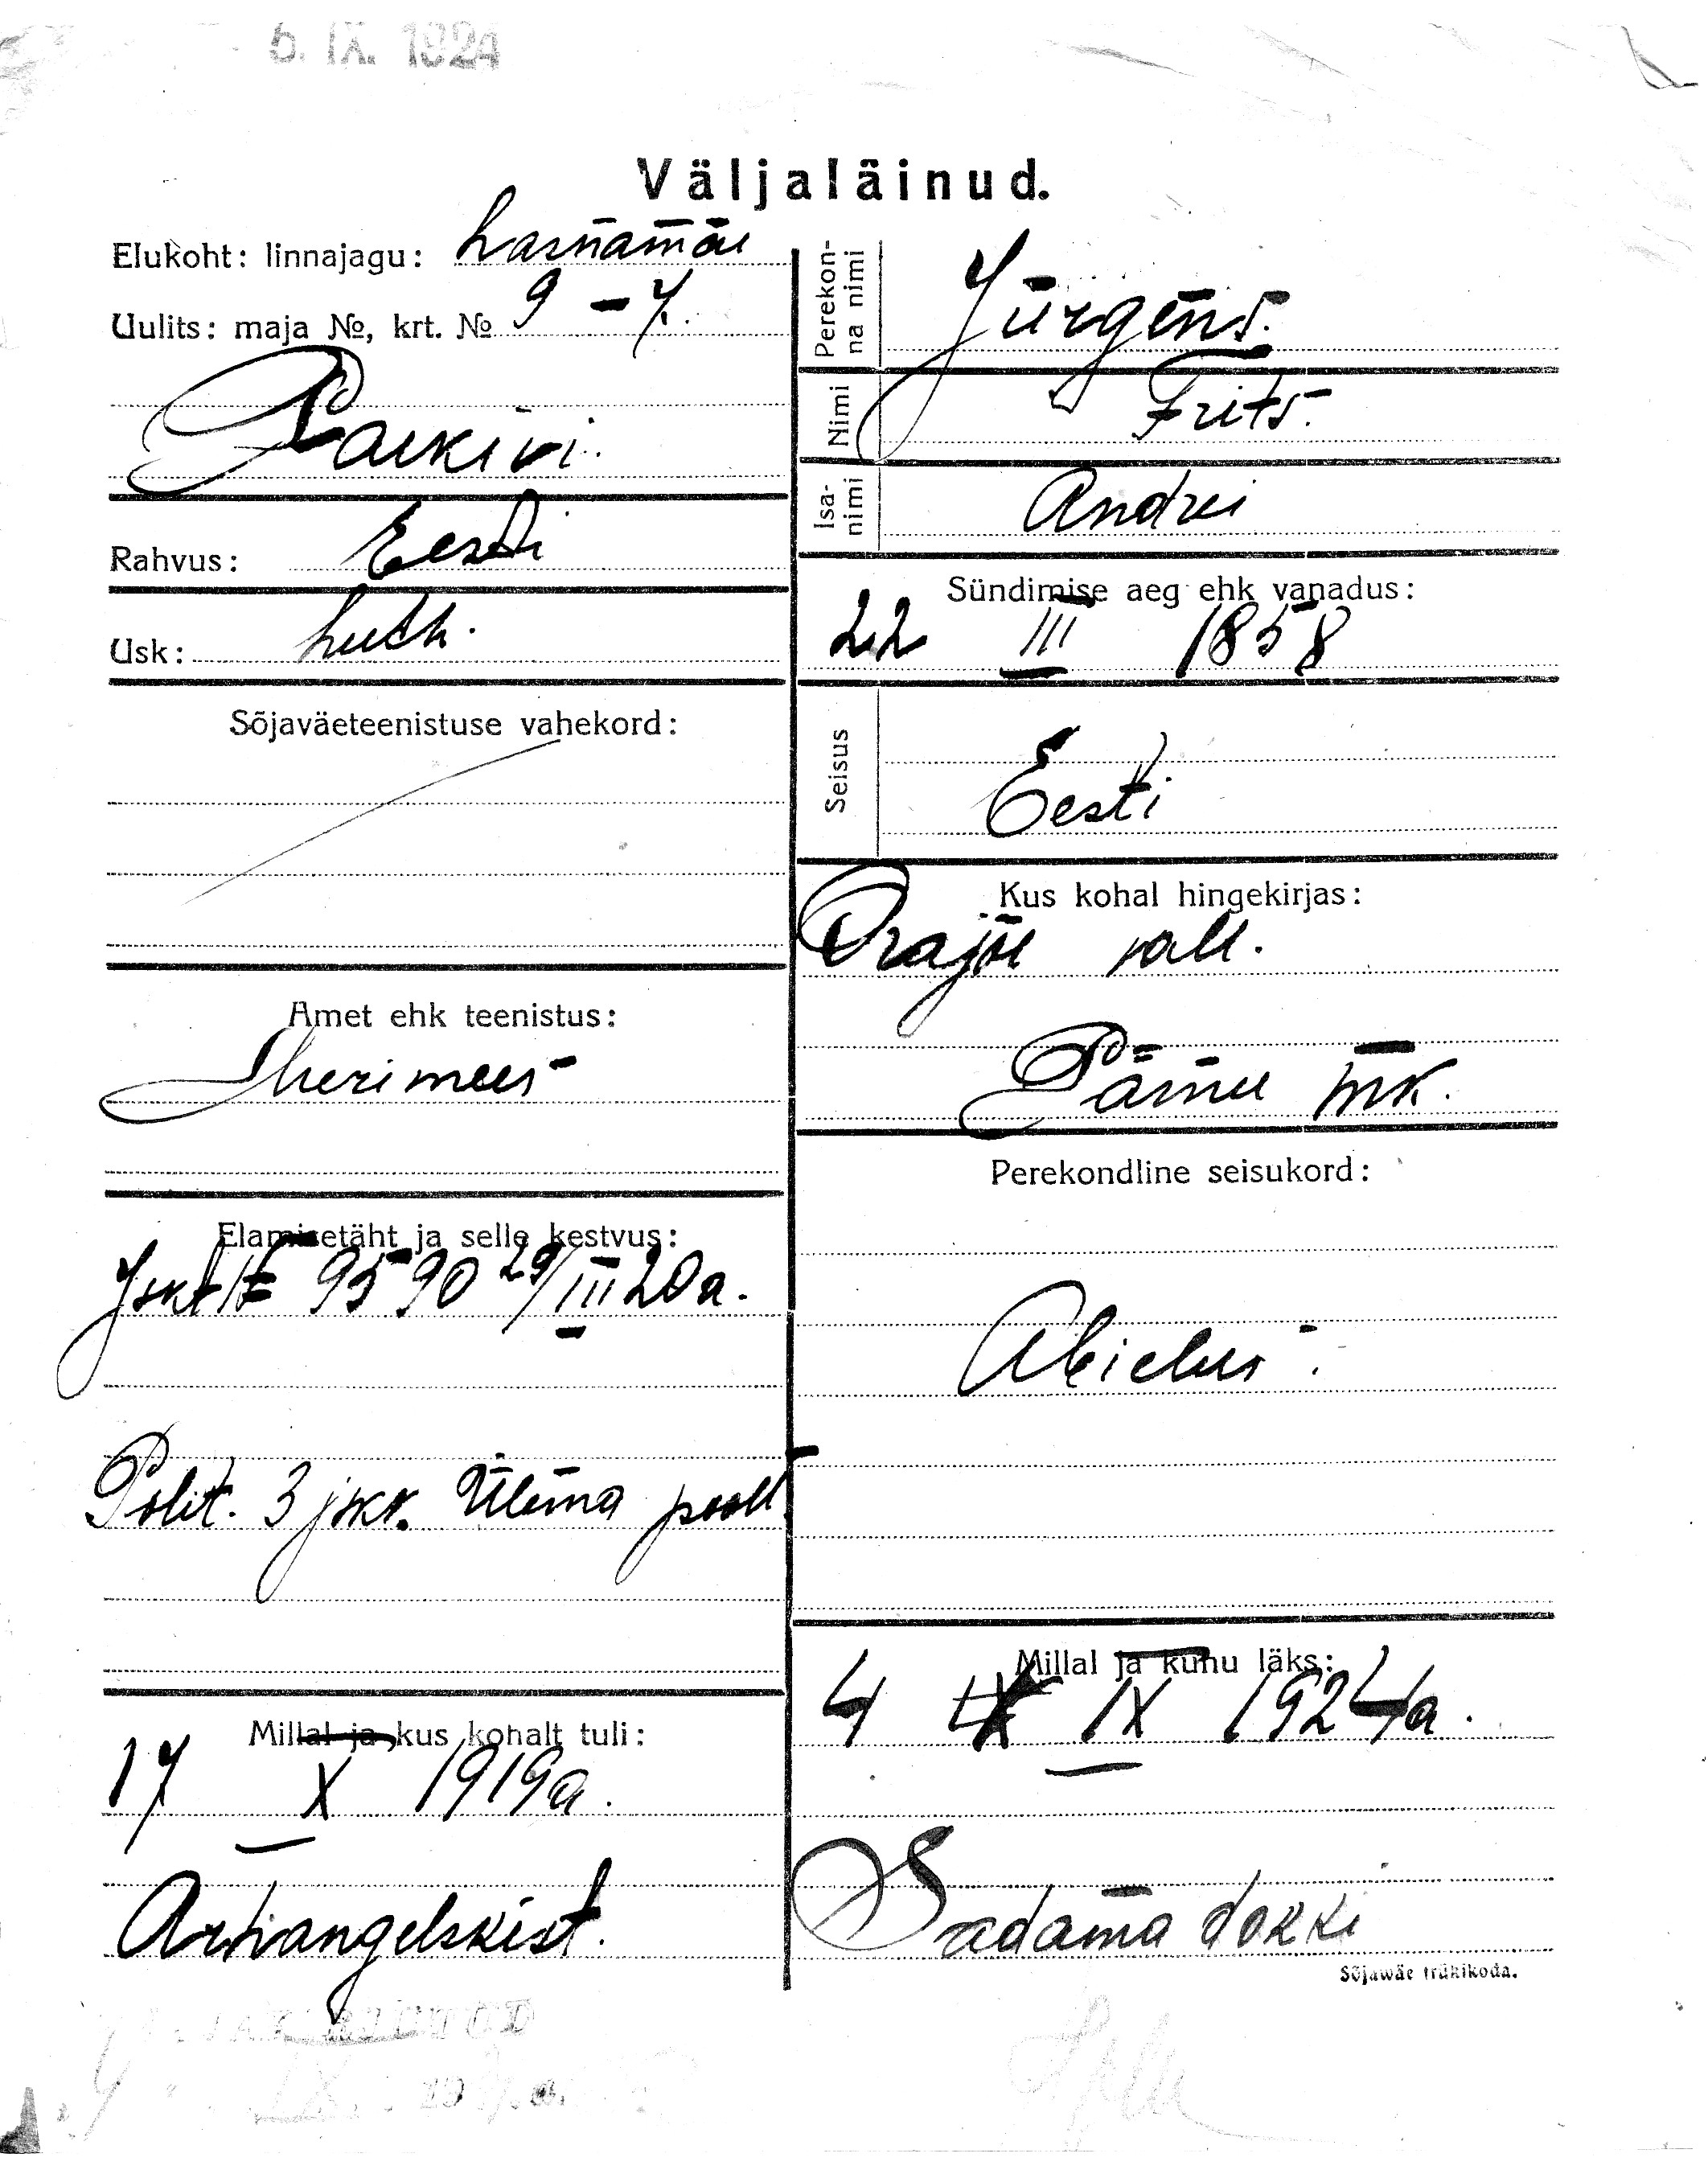 6. IX. 1924
Väljaläinud.
Elukoht: linnajagu: Lasnamäe
Uulits: maja №, krt. № 9 – 7.
Paekivi.
Rahvus: Eesti
Usk: Luth.
Sõjaväeteenistuse vahekord:
Amet ehk teenistus:
Merimees
Elamisetäht ja selle kestvus:
9590 29/III 20 a.
Polit. 3 jsk. Ülema poolt
Millal ja kus kohalt tuli:
17 X 1919 a.
Arhangelskist.
Perekonna nimi
Jürgens.
Nimi
Frits.
Isanimi
Andrei
Sündimise aeg ehk vanadus:
22 III 1858
Seisus
Eesti
Kus kohal hingekirjas:
Orajõe vall.
Pärnu mk.
Perekondline seisukord:
Abielus.
Millal ja kuhu läks:
4 IX 1924 a.
Sadama dokki
Sõjawäe trükikoda.